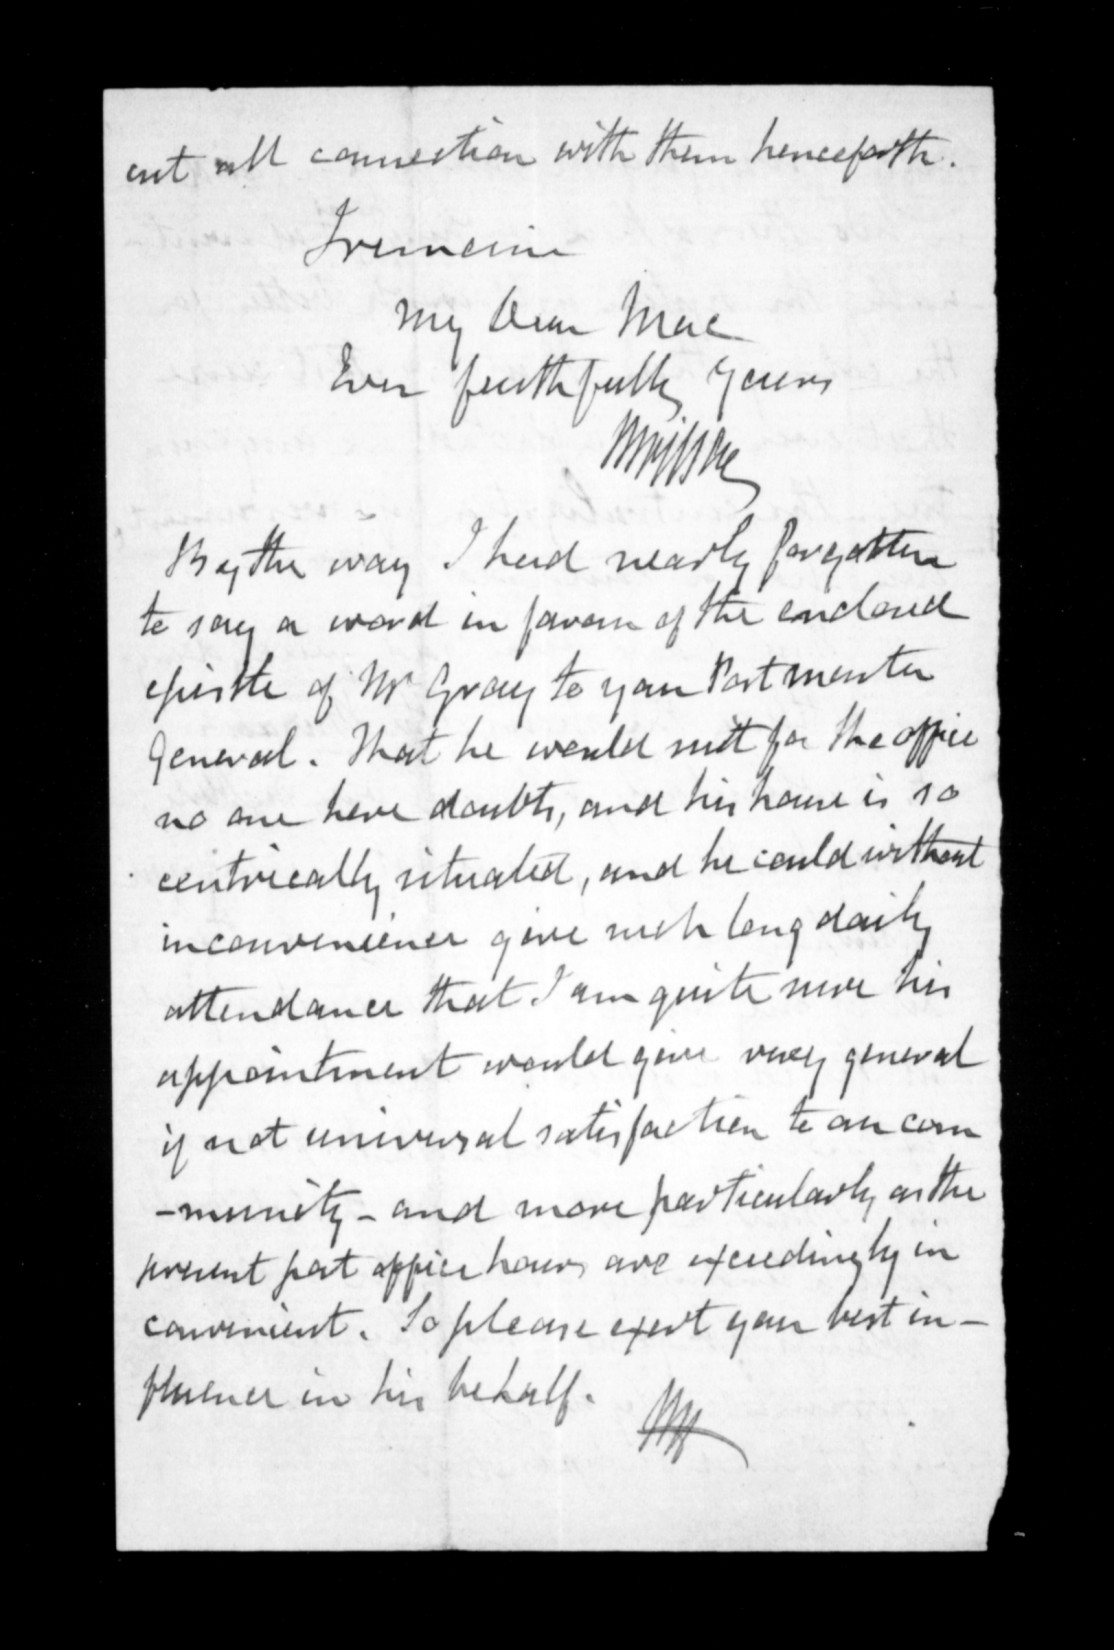 cut all connection with them henceforth.
I remain
My Dear Mac
Ever faithfully Yours
By the way I had nearly forgotten
to say a word in favour of the enclosed
epistle of Mr Gray to your Postmaster
General. That he would suit for the office
no one here doubts, and his house is so
centrically situated, and he could without
inconvenience give such long daily
attendance that I am quite sure his
appointment would give very general
if not universal satisfaction to our com
-munity - and more particularly as the
present post office hours are exceedingly in
convenient. So please exert your best in-
fluence in his behalf.